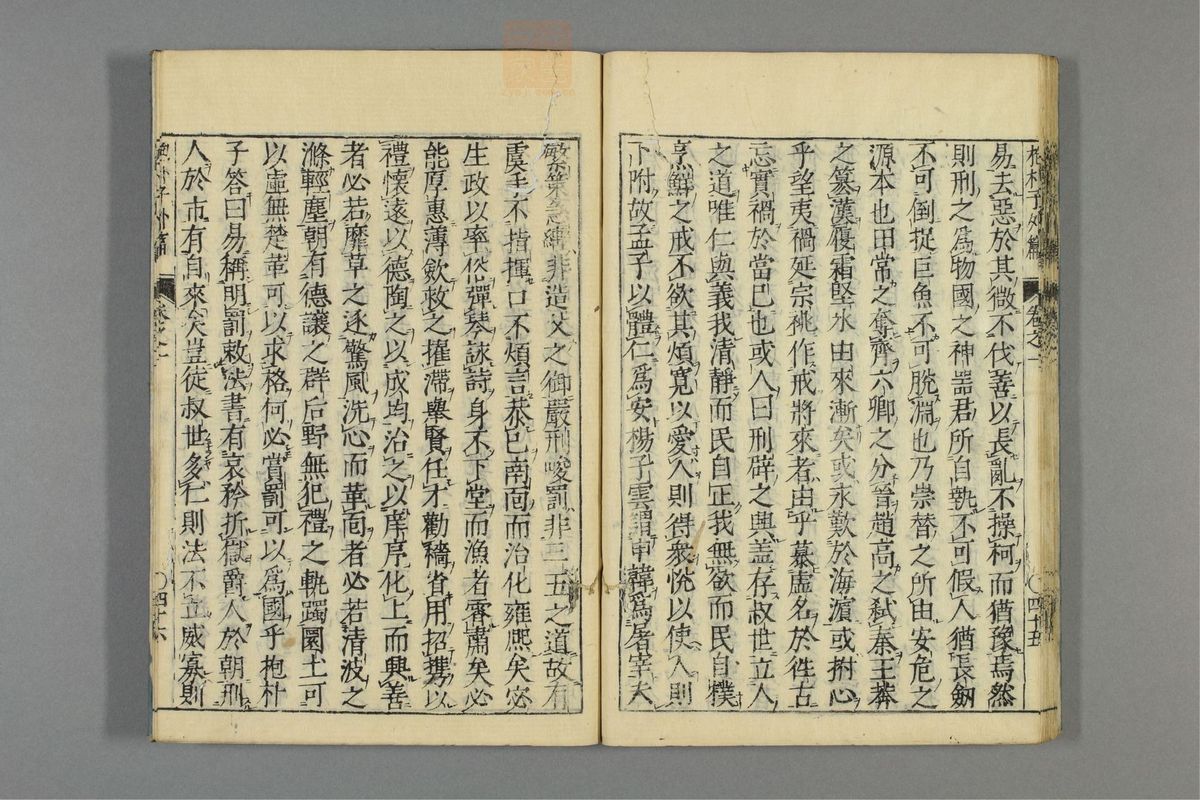 抱朴子外篇 卷之一 〇四十五
易去惡於其微不伐善以長亂不操柯而猶豫焉然
則刑之爲物國之神器君所自執不可假人猶長劒
不可倒捉巨魚不可脫淵也乃崇替之所由安危之
源本也田常之奪齊六卿之分晉趙高之弑秦王莽
之篡漢履霜堅氷由來漸矣或永歎於海濵或拊心
乎望夷禍延宗祧作戒將來者由乎慕虛名於徃古
忘實禍於當己也或人曰刑辟之興盖存叔世立人
之道唯仁與義我清靜而民自正我無欲而民自樸
烹鮮之戒不欲其煩寬以愛人則得衆恱以使人則
下附故孟子以體仁爲安楊子雲謂申韓爲屠宰夫
繁策急轡非造父之御嚴刑峻罰非三五之道故有
虞手不指揮口不煩言恭己南面而治化雍熈矣宓
生政以率俗彈琴詠詩身不下堂而漁者霄肅矣必
能厚惠薄斂救乏擢滯舉賢任才勸穡省用招携以
禮懷遠以德陶之以成均治之以庠序化上而興善
者必若靡草之逐驚風洗心而革面者必若清波之
滌輕塵朝有德讓之群后野無犯禮之軌躅圜土可
以虛無楚革可以求格何必賞罰可以爲國乎抱朴
子答曰易稱明罰敕法書有哀矜折獄爵人於朝刑
人於市有自來矣豈徒叔世多仁則法不立威寡則
抱朴子外篇 卷之一 〇四十六